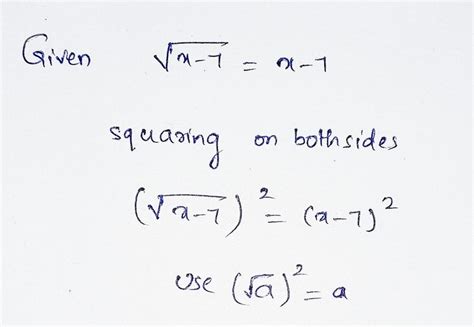 Given √(x-7) = x-7
squaring on both sides
(√(x-7))² = (x-7)²
use (√a)² = a